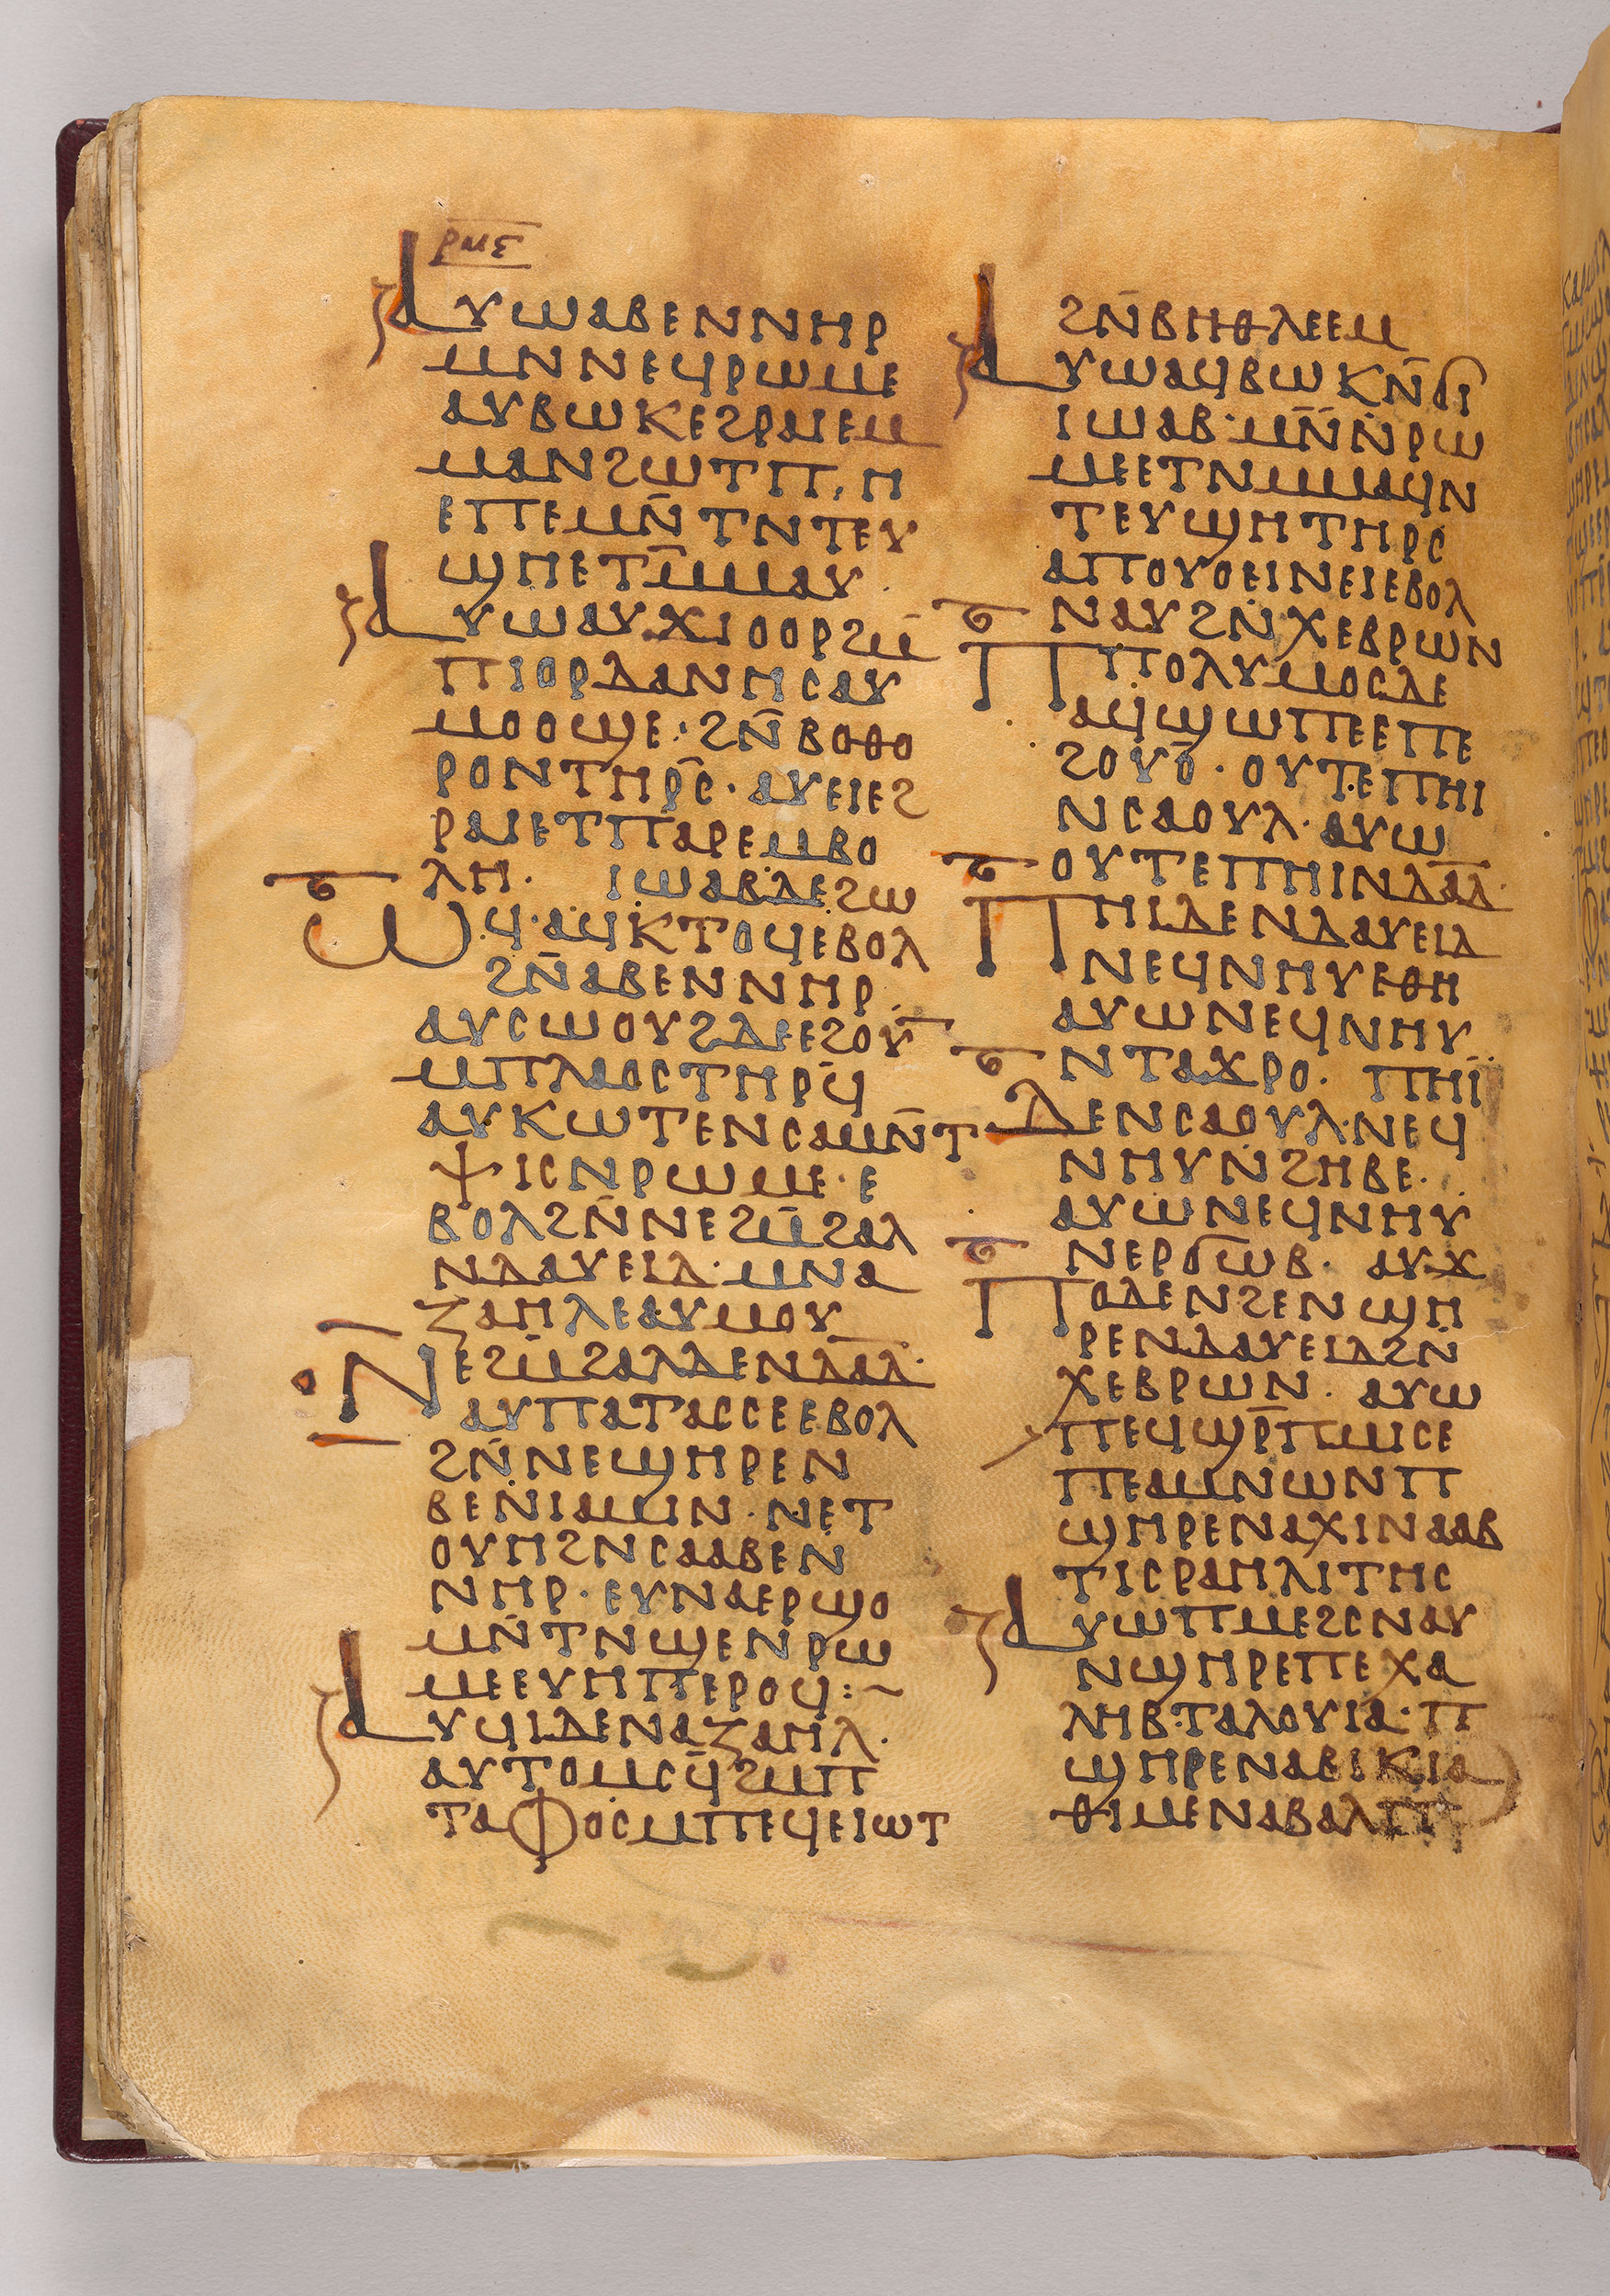 ⲣⲙⲉ
ⲁⲩⲱ ⲁⲃⲉⲛⲛⲏⲣ
ⲙⲛ ⲛⲉϥⲣⲱⲙⲉ
ⲁⲩⲃⲱⲕ ⲉϩⲣⲁⲓ ⲉⲙ
ⲙⲁⲛϩⲱⲧⲡ· ⲏ
ⲉⲡⲉⲙⲛ̄ⲧ ⲛⲧⲉⲩ
ϣⲏ ⲉⲧⲙ̄ⲙⲁⲩ·
ⲁⲩⲱ ⲁⲩϫⲓⲟⲟⲣ ϩⲙ̄
ⲡⲓⲟⲣⲇⲁⲛⲏⲥ ⲁⲩ
ⲙⲟⲟϣⲉ· ϩⲛ̄ ⲃⲟⲑⲟ
ⲣⲟⲛ ⲧⲏⲣⲥ̄· ⲁⲩⲉⲓ ⲉϩ
ⲣⲁⲓ ⲉⲧⲡⲁⲣⲉⲙⲃⲟ
ⲗⲏ· ⲓⲱⲁⲃ ⲇⲉ ϩⲱ
ⲱϥ· ⲁϥⲕⲧⲟϥ ⲉⲃⲟⲗ
ϩⲛ̄ ⲁⲃⲉⲛⲛⲏⲣ·
ⲁⲩⲥⲱⲟⲩϩ ⲇⲉ ⲉϩⲟⲩ̄
ⲙⲡⲗⲁⲟⲥ ⲧⲏⲣϥ̄
ⲁⲩⲕⲱⲧⲉ ⲛⲥⲁ ⲙⲛ̄ⲧ
ⲯⲓⲥ ⲛⲣⲱⲙⲉ· ⲉ
ⲃⲟⲗ ϩⲛ̄ ⲛⲉϩⲙ̄ϩⲁⲗ
ⲛⲇⲁⲩⲉⲓⲇ· ⲙⲛ ⲁ
ⲍⲁⲏⲗ ⲉⲁⲩⲙⲟⲩ
ⲛⲉϩⲙ̄ϩⲁⲗ ⲇⲉ ⲛⲇⲁ̄ⲇ̄·
ⲁⲩⲡⲁⲧⲁⲥⲥⲉ ⲉⲃⲟⲗ
ϩⲛ̄ ⲛⲉϣⲏⲣⲉ ⲛ
ⲃⲉⲛⲓⲁⲙⲓⲛ· ⲛⲉⲧ
ⲟⲩⲏϩ ⲛⲥⲁ ⲁⲃⲉⲛ
ⲛⲏⲣ· ⲉⲩⲛⲁⲉⲣ ϣⲟ
ⲙⲛ̄ⲧ ⲛϣⲉ ⲛ̄ⲣⲱ
ⲙⲉ ⲉⲩⲏⲡ ⲉⲣⲟϥ:~
ⲁⲩϥⲓ ⲇⲉ ⲛⲁⲍⲁⲏⲗ·
ⲁⲩⲧⲟⲙⲥϥ̄ ϩⲙ ⲡ
ⲧⲁⲫⲟⲥ ⲙⲡⲉϥⲉⲓⲱⲧ
ϩⲛ̄ ⲃⲏⲑⲗⲉⲉⲙ
ⲁⲩⲱ ⲁϥⲃⲱⲕ ⲛ̄ϭⲓ
ⲓⲱⲁⲃ· ⲙⲛ̄ ⲛ̄ⲣⲱ
ⲙⲉ ⲉⲧⲛⲙⲙⲁϥ ⲛ
ⲧⲉⲩϣⲏ ⲧⲏⲣⲥ
ⲁⲡⲟⲩⲟⲉⲓⲛ ⲉⲓ ⲉⲃⲟⲗ
ⲛⲁⲩ ϩⲛ̄ ⲭⲉⲃⲣⲱⲛ
ⲡⲡⲟⲗⲩⲙⲟⲥ ⲇⲉ
ⲁϥϣⲱⲡⲉ ⲉⲡⲉ
ϩⲟⲩⲟ̄· ⲟⲩⲧⲉ ⲡⲏⲓ
ⲛⲥⲁⲟⲩⲗ· ⲁⲩⲱ
ⲟⲩⲧⲉ ⲡⲏⲓ ⲛⲇⲁ̄ⲇ̄·
ⲡⲏⲓ ⲇⲉ ⲛⲇⲁⲩⲉⲓⲇ
ⲛⲉϥⲛⲏⲩ ⲉⲑⲏ
ⲁⲩⲱ ⲛⲉϥⲛⲏⲩ
ⲛⲧⲁϫⲣⲟ· ⲡⲏⲓ̈
ⲇⲉ ⲛⲥⲁⲟⲩⲗ· ⲛⲉϥ
ⲛⲏⲩ ⲛ̄ϩⲏⲃⲉ·
ⲁⲩⲱ ⲛⲉϥⲛⲏⲩ
ⲛⲉⲣϭⲱⲃ· ⲁⲩϫ
ⲡⲟ ⲇⲉ ⲛϩⲉⲛϣⲏ
ⲣⲉ ⲛⲇⲁⲩⲉⲓⲇ ϩⲛ̄
ⲭⲉⲃⲣⲱⲛ· ⲁⲩⲱ
ⲡⲉϥϣⲣ̄ⲡⲙⲓⲥⲉ
ⲡⲉ ⲁⲙⲛⲱⲛ ⲡ
ϣⲏⲣⲉ ⲛⲁⲭⲓⲛⲁⲁⲃ
ⲧⲓⲥⲣⲁⲏⲗⲓⲧⲏⲥ
ⲁⲩⲱ ⲡⲙⲉϩⲥⲛⲁⲩ
ⲛϣⲏⲣⲉ ⲡⲉ ⲭⲁ
ⲗⲏⲃ· ⲧⲁⲗⲟⲩⲓⲁ· ⲡ
ϣⲏⲣⲉ ⲛⲁⲃⲓⲕⲓⲁ
ⲑⲓⲙⲉ ⲛⲁⲃⲁⲗ ⲡ